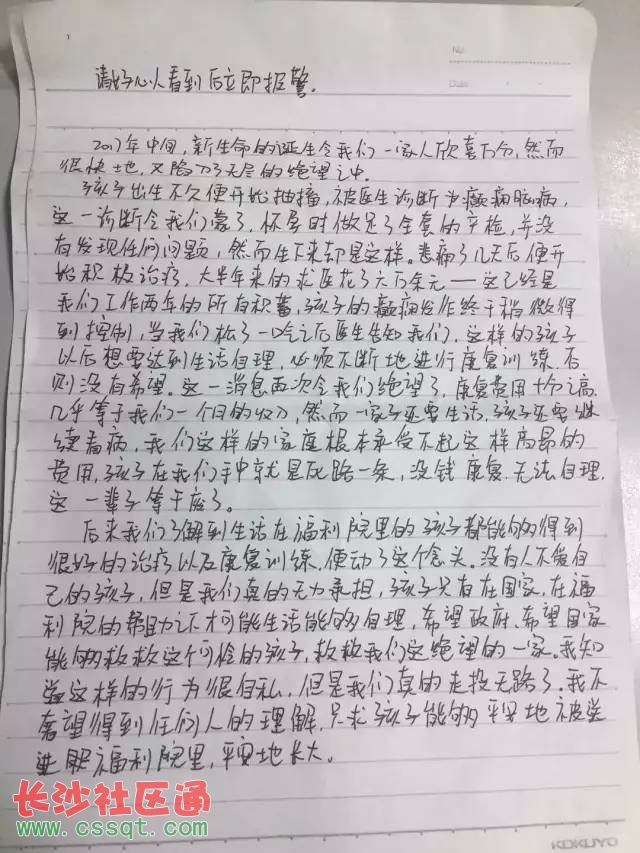 No.
Date
请好心人看到后立即报警。
2017年中间,新生命的诞生令我们一家人欣喜万分,然而
很快地,又陷入了无尽的绝望之中。
孩子出生不久便开始抽搐,被医生诊断为癫痫脑病,
这一诊断令我们懵了,怀孕时做足了全套的产检,并没
有发现任何问题,然而生下来却是这样。悲痛了几天后便开
始积极治疗,大半年来的求医花了六万余元——这已经是
我们工作两年的所有积蓄,孩子的癫痫发作终于稍微得
到控制,当我们松了一口气之后医生告知我们,这样的孩子
以后想要达到生活自理,必须不断地进行康复训练,否
则没有希望。这一消息再次令我们绝望了,康复费用十分之高,
几乎等于我们一个月的收入,然而一家子还要生活,孩子还要继
续看病,我们这样的家庭根本承受不起这样高昂的
费用,孩子在我们手中就是死路一条,没钱康复,无法自理,
这一辈子等于废了。
后来我们了解到生活在福利院里的孩子都能够得到
很好的治疗以及康复训练,便动了这个念头。没有人不爱自
己的孩子,但是我们真的无力承担,孩子只有在国家,在福
利院的帮助下才可能生活能够自理,希望政府、希望国家
能够救救这个可怜的孩子,救救我们这绝望的一家。我知
道这样的行为很自私,但是我们真的走投无路了。我不
奢望得到任何人的理解,只求孩子能够平安地被送
进 福利院里,平安地长大。
长沙社区通
www.cssqt.com
KOKUYO